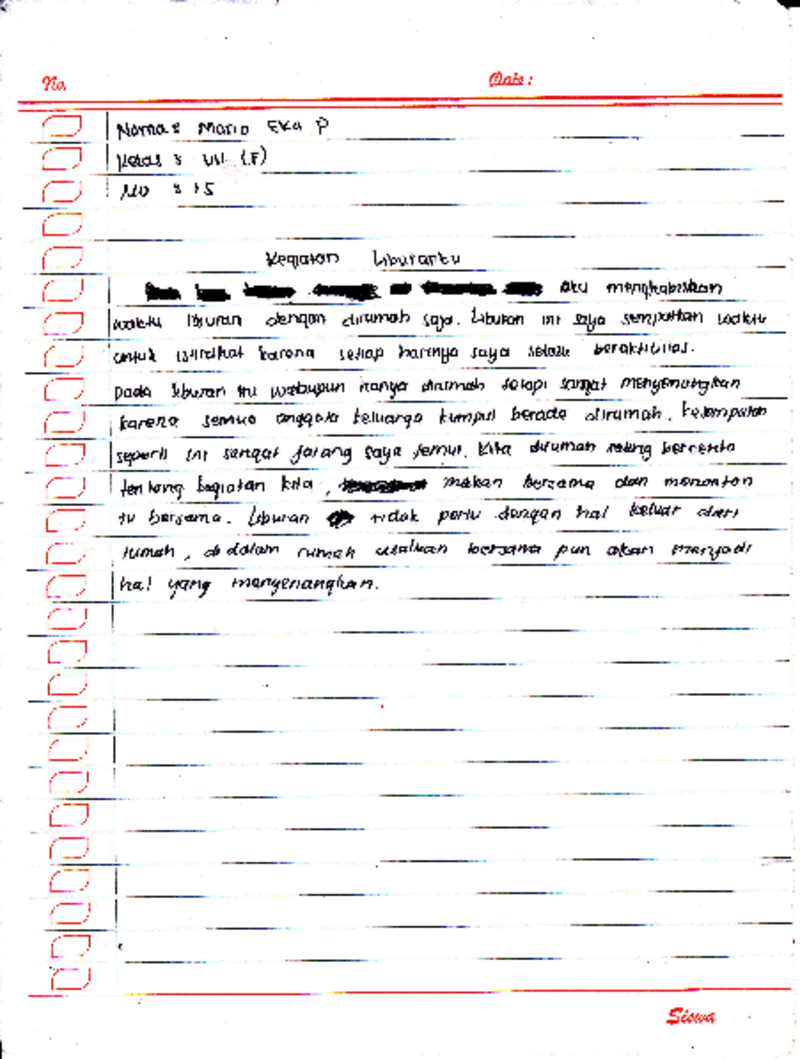 No.
Date:
Nama : Mario Eka P
Kelas : VII (F)
No : 15
Kegiatan Liburanku
Aku menghabiskan
waktu liburan dengan dirumah saja. Liburan ini saya sempatkan waktu
untuk istirahat karena setiap harinya saya selalu beraktivitas.
Pada liburan itu walaupun hanya dirumah tetapi sangat menyenangkan
karena semua anggota keluarga kumpul berada dirumah. kesempatan
seperti ini sangat jarang saya temui. Kita dirumah saling bercerita
tentang kegiatan kita, makan bersama dan menonton
tv bersama. Liburan tidak perlu dengan hal keluar dari
rumah, didalam rumah asalkan bersama pun akan menjadi
hal yang menyenangkan.
Siswa